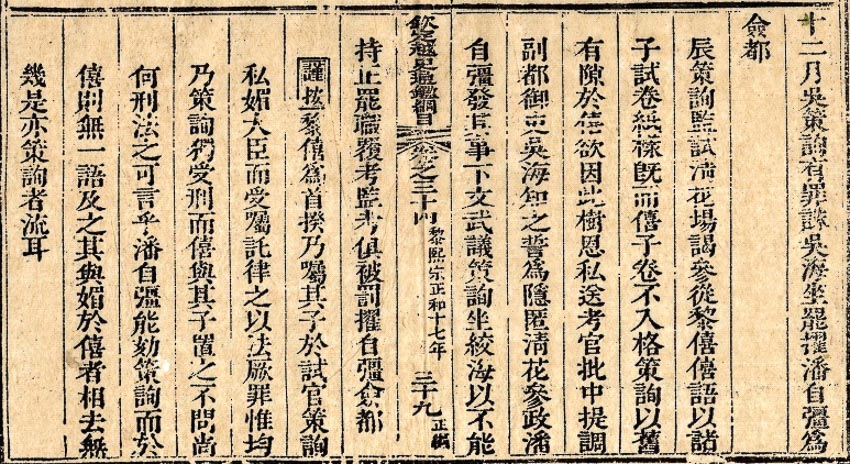 十二月吳策詢有罪誅吳海坐罷擢潘自彊爲
僉都
辰策詢監試清花場謁參從黎僖僖語以諸
子試卷紙樣旣而僖子卷不入格策詢以舊
有隙於僖欲因此樹恩私送考官批中提調
副都御史吳海知之誓爲隱匿清花參政潘
自彊發其事下文武議策詢坐絞海以不能
欽定越史通鑑綱目 卷之三十四 黎熙宗正和十七年 三十九 正編
持正罷職覆考監考俱被罰擢自彊僉都
謹按黎僖爲首揆乃囑其子於試官策詢
私媚大臣而受囑託律之以法厥罪惟均
乃策詢獨受刑而僖與其子置之不問尚
何刑法之可言乎潘自彊能劾策詢而於
僖則無一語及之其與媚於僖者相去無
幾是亦策詢者流耳